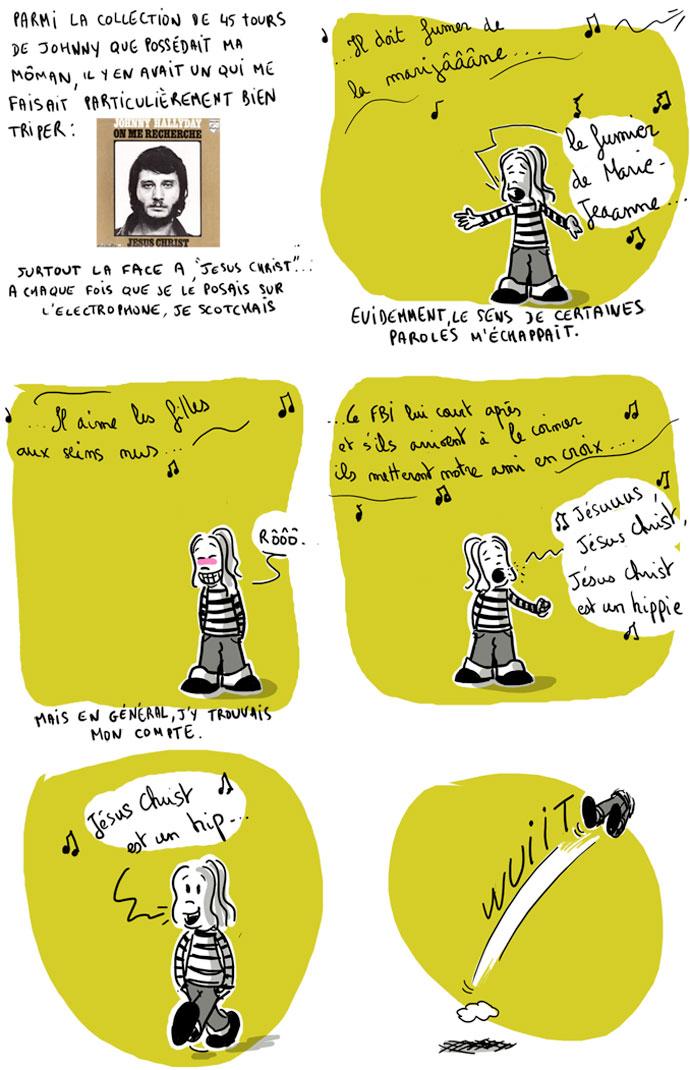 PARMI LA COLLECTION DE 45 TOURS
DE JOHNNY QUE POSSÉDAIT MA
MÔMAN, IL Y EN AVAIT UN QUI ME
FAISAIT PARTICULIÈREMENT BIEN
TRIPER :
JOHNNY HALLYDAY
ON ME RECHERCHE
JESUS CHRIST
SURTOUT LA FACE A, "JESUS CHRIST"...
A CHAQUE FOIS QUE JE LE POSAIS SUR
L'ELECTROPHONE, JE SCOTCHAIS
...Il doit fumer de
la marijâââne...
le fumier
de Marie-
Jeaanne...
EVIDEMMENT, LE SENS DE CERTAINES
PAROLES M'ÉCHAPPAIT.
...Il aime les filles
aux seins nus...
RÔÔÔ.
MAIS EN GÉNÉRAL, J'Y TROUVAIS
MON COMPTE.
...Le FBI lui court après
et s'ils arrivent à le coincer
ils metteront notre ami en croix....
Jésuuus,
Jésus Christ,
Jésus Christ
est un hippie
Jésus Christ
est un hip...
WUIIT